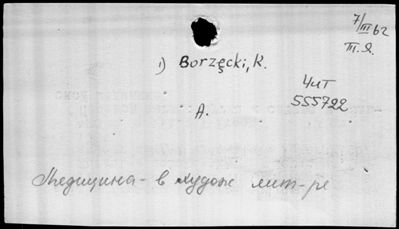 7/III 62
Т. Я.
1) Borzęcki, K.
ЧИТ
555722
А.
Медицина - в худож лит-ре